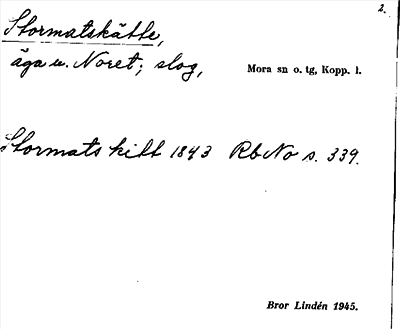 2.
Stormatskätte,
äga u. Noret; slog,
Mora sn o. tg, Kopp. l.
Stormats kitt 1843 RbNo s. 339.
Bror Lindén 1945.